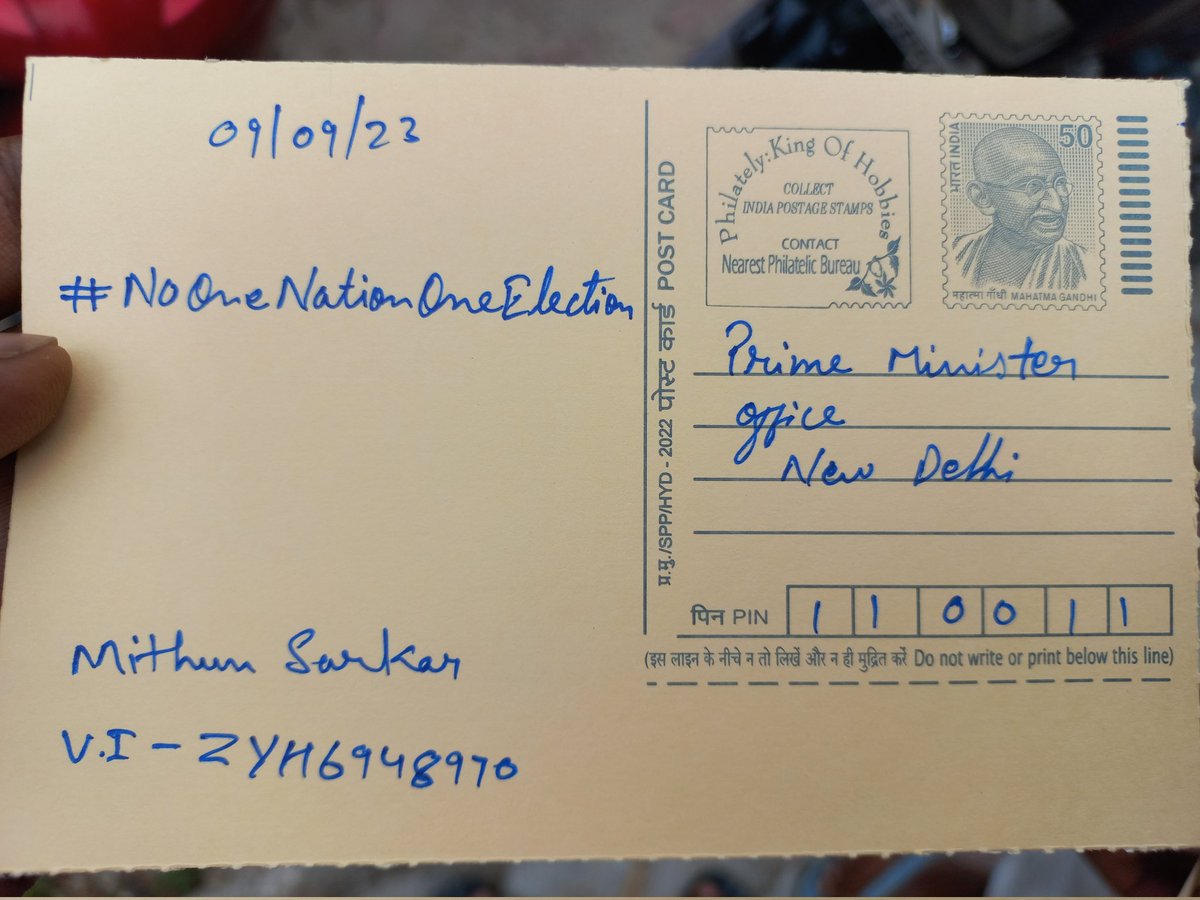 09/09/23
#NoOneNationOneElection
Mithun Sarkar
V.I - ZYH6948970
प्र.मु./SPP/HYD - 2022 पोस्ट कार्ड POST CARD
Philately: King Of Hobbies
COLLECT
INDIA POSTAGE STAMPS
CONTACT
Nearest Philatelic Bureau
भारत INDIA
50
महात्मा गाँधी MAHATMA GANDHI
Prime Minister
office
New Delhi
पिन PIN 110011
(इस लाइन के नीचे न तो लिखें और न ही मुद्रित करें Do not write or print below this line)